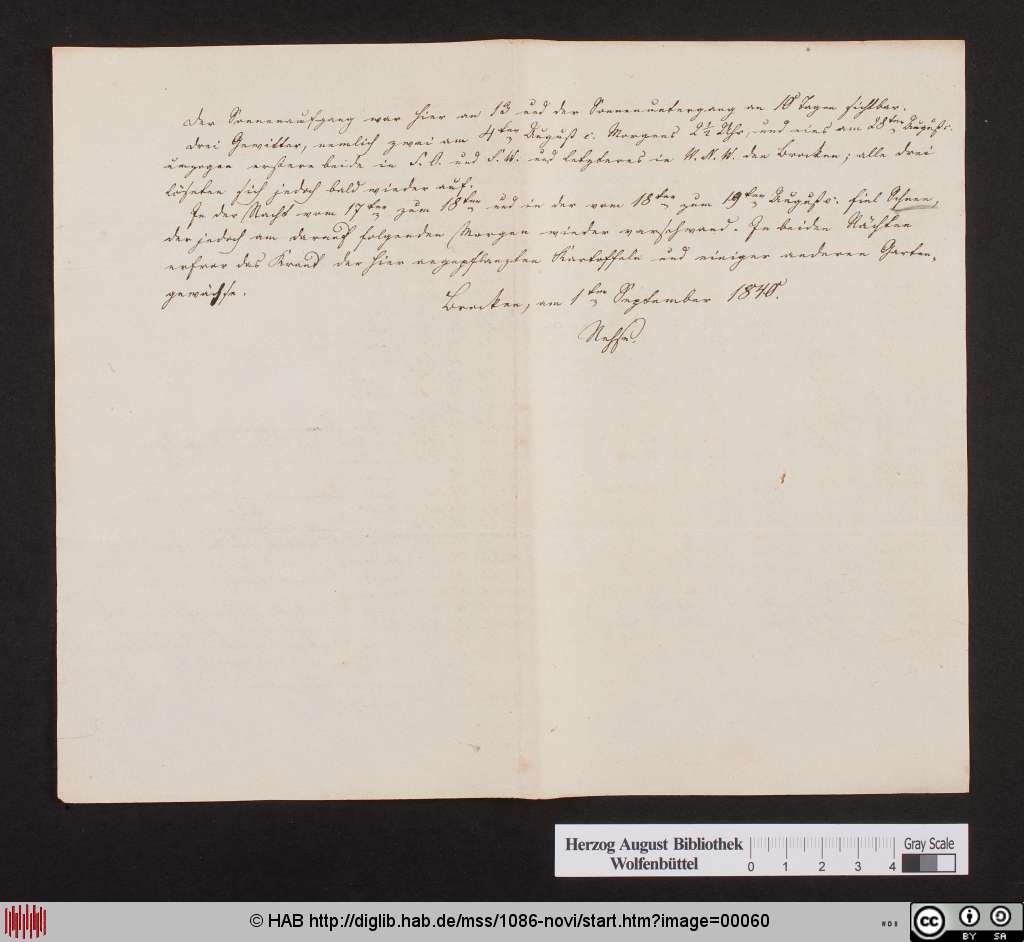 Der Sonnenaufgang war hier an 13 und der Sonnenuntergang an 10 Tagen sichtbar.
Drei Gewitter, nemlich zwei am 4ten August c. Morgens 2½ Uhr, und eins am 28ten August c.
umzogen erstere beide in S. O. und S. W. und letzteres in N. N. W. den Brocken; alle drei
lösten sich jedoch bald wieder auf.
In der Nacht vom 17ten zum 18ten und in der vom 18ten zum 19ten August c. fiel Schnee,
der jedoch am darauf folgenden Morgen wieder verschwand. In beiden Nächten
erfror das Kraut der hier angepflanzten Kartoffeln und einiger anderen Garten-
gewächse.
Brocken, am 1ten September 1840.
Nehse.
Herzog August Bibliothek
Wolfenbüttel
0 1 2 3 4
Gray Scale
© HAB http://diglib.hab.de/mss/1086-novi/start.htm?image=00060
cc BY SA